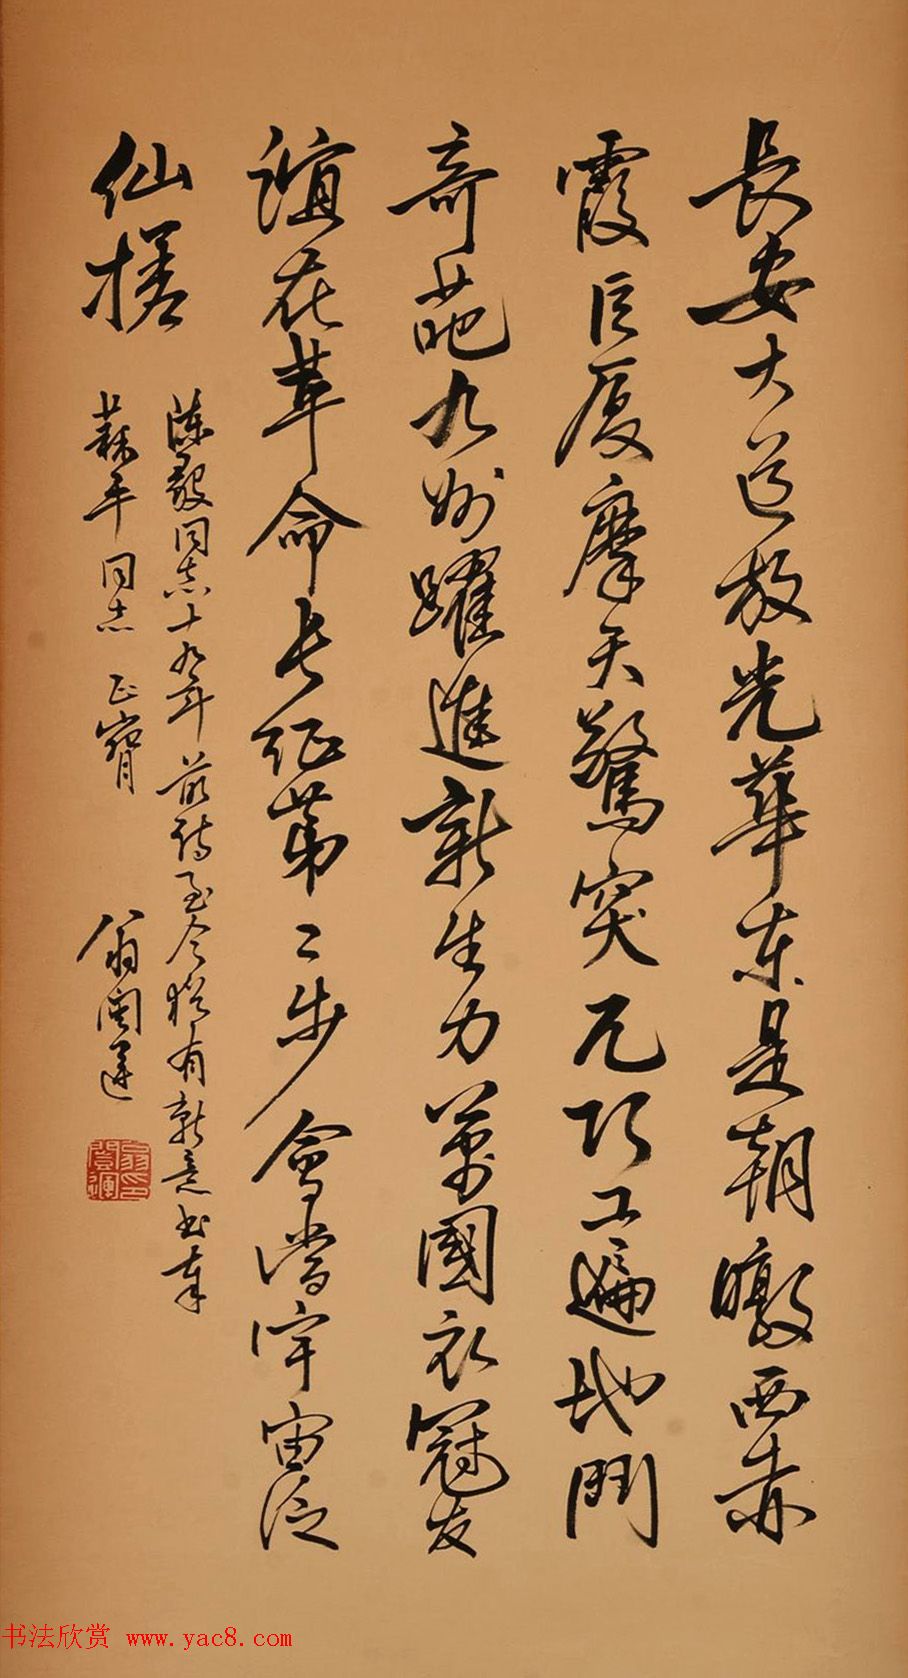 長安大道放光華東是朝暾西赤
霞巨厦摩天驚突兀巧工遍地鬥
奇葩九州躍進新生力萬國衣冠友
誼在革命长征第二步會當宇宙泛
仙槎
陳毅同志十九年前诗至今猶有新意书奉
蘇平同志 正腕
翁闓運
翁印闓運
书法欣赏 www.yac8.com